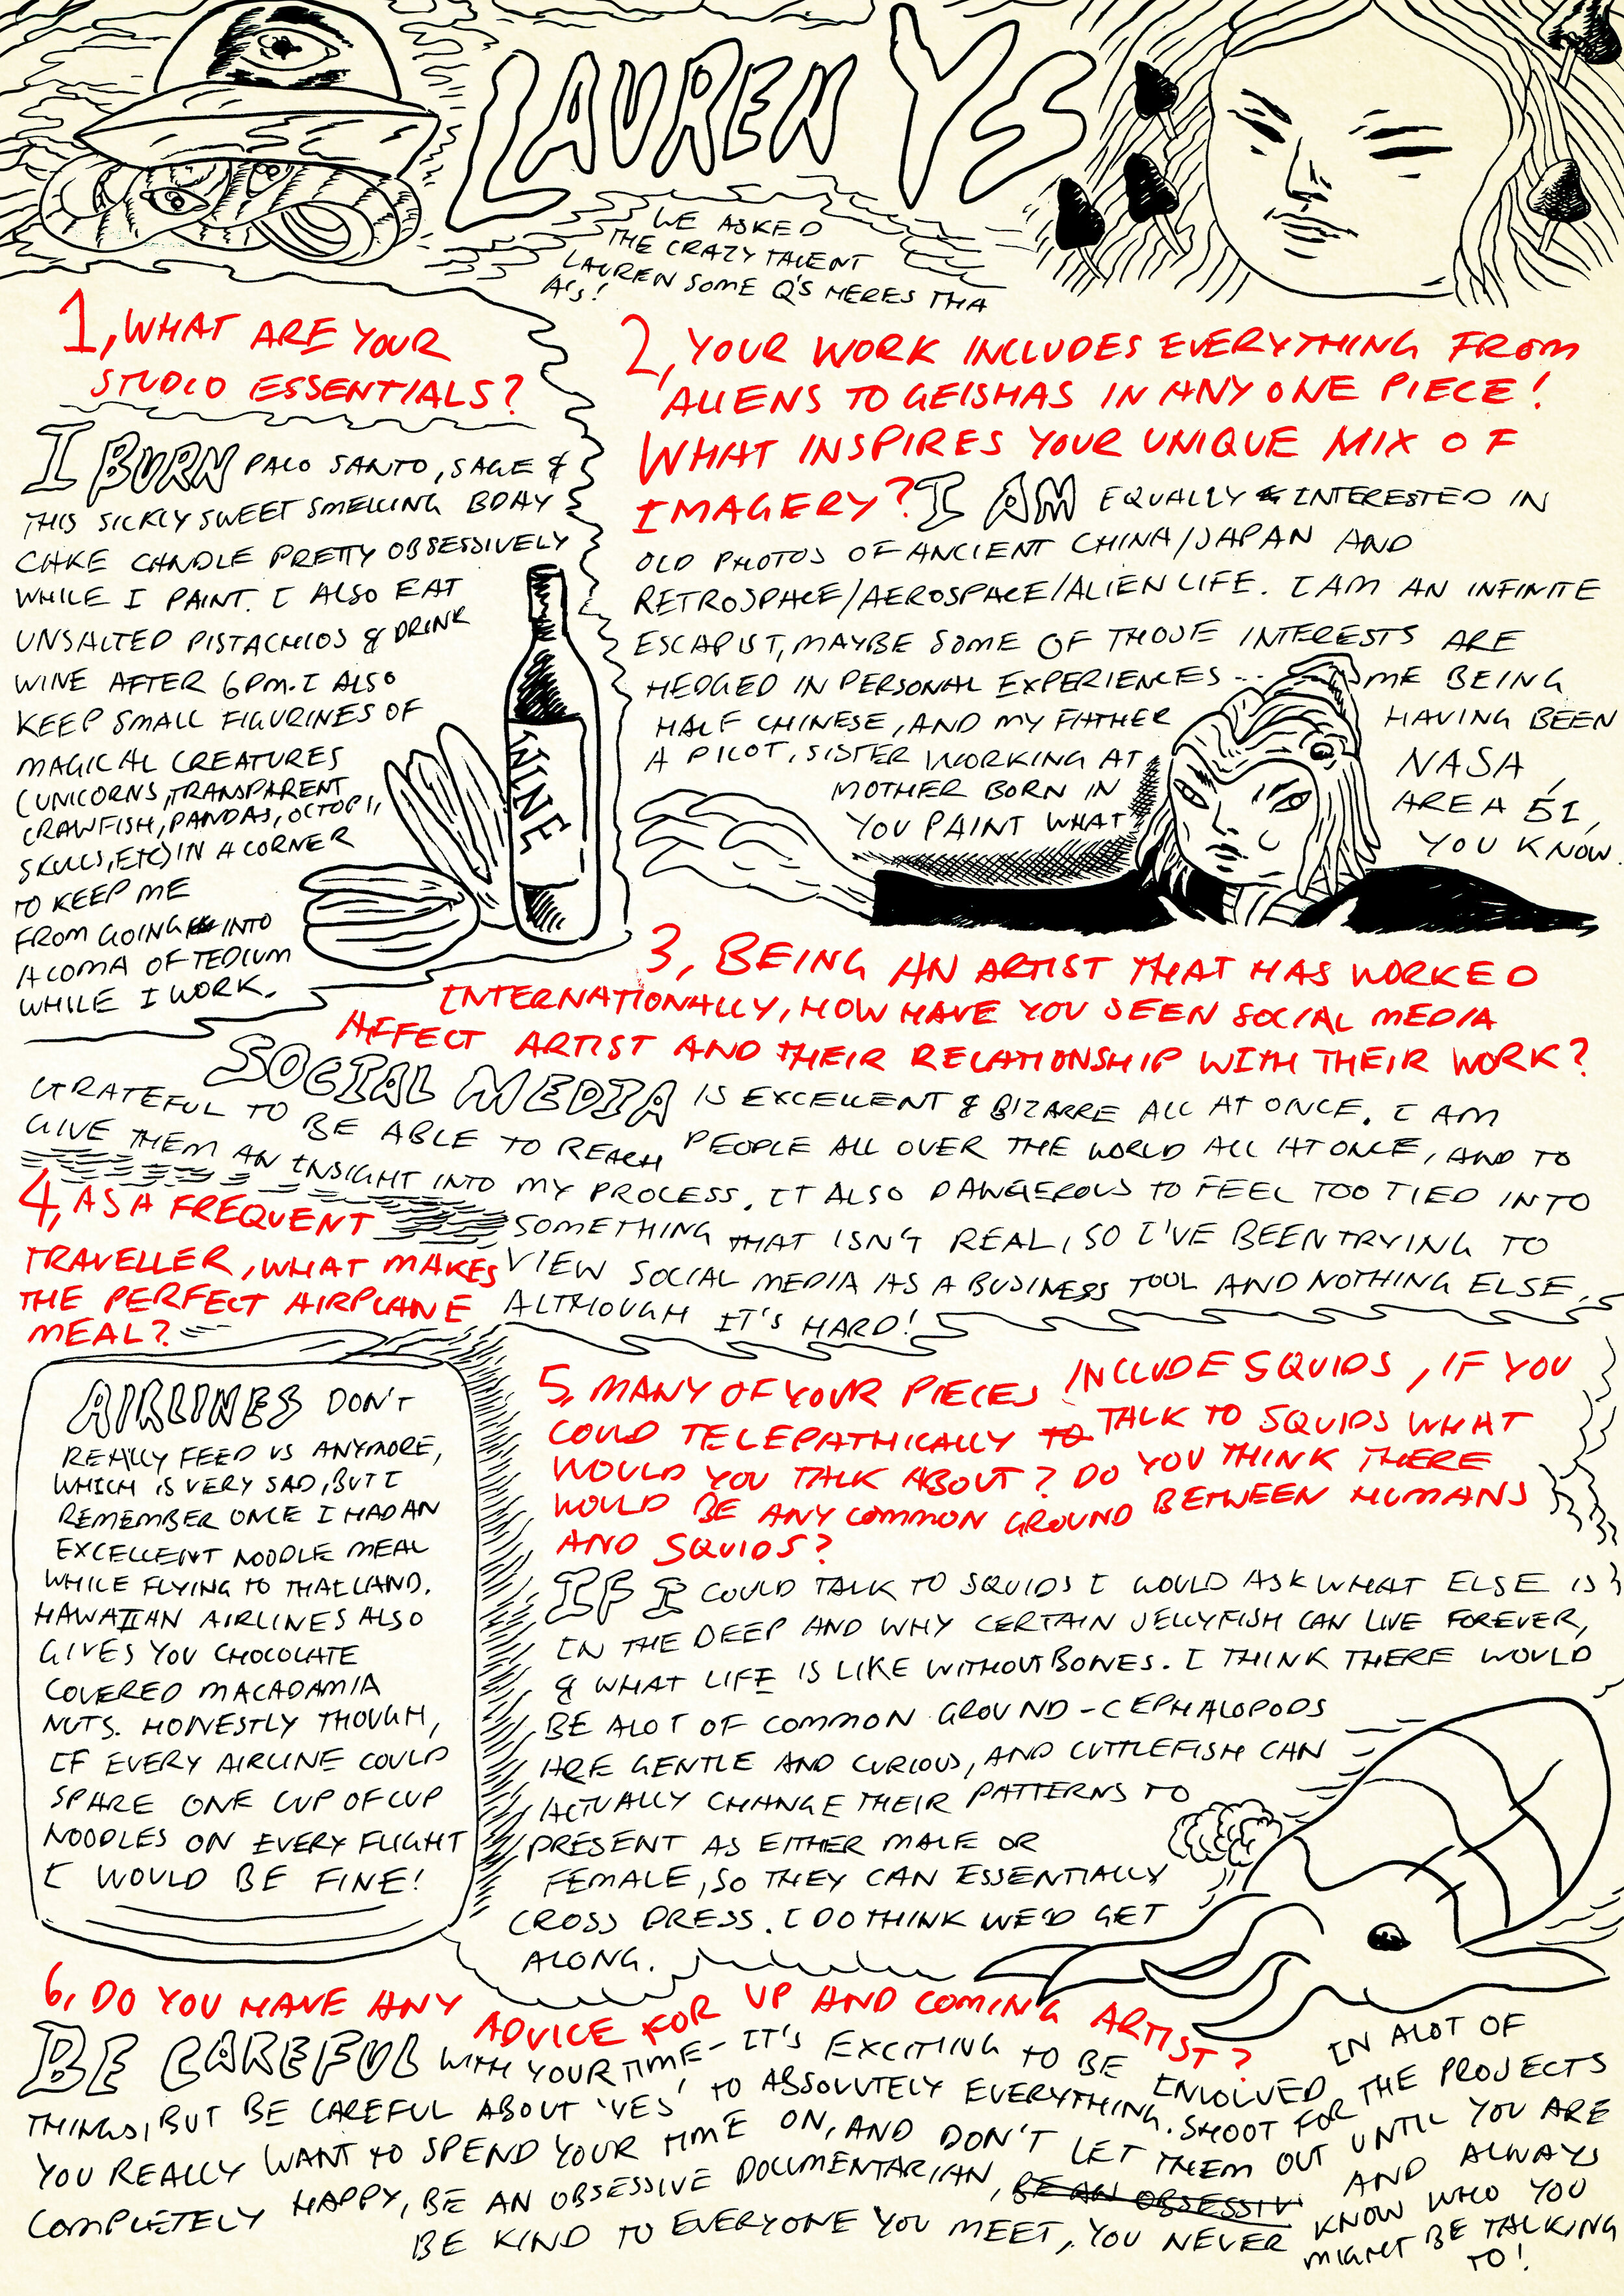 LAUREN YES
WE ASKED
THE CRAZY TALENT
LAUREN SOME Q'S HERES THA
A'S!
1, WHAT ARE YOUR
STUDIO ESSENTIALS?
I BURN PALO SANTO, SAGE &
THIS SICKLY SWEET SMELLING BDAY
CAKE CANDLE PRETTY OBSESSIVELY
WHILE I PAINT. I ALSO EAT
UNSALTED PISTACHIOS & DRINK
WINE AFTER 6PM. I ALSO
KEEP SMALL FIGURINES OF
MAGICAL CREATURES
(UNICORNS, TRANSPARENT
CRAWFISH, PANDAS, OCTOPI,
SKULLS, ETC) IN A CORNER
TO KEEP ME
FROM GOING INTO
A COMA OF TEDIUM
WHILE I WORK.
WINE
2, YOUR WORK INCLUDES EVERYTHING FROM
ALIENS TO GEISHAS IN ANY ONE PIECE!
WHAT INSPIRES YOUR UNIQUE MIX OF
IMAGERY? I AM EQUALLY INTERESTED IN
OLD PHOTOS OF ANCIENT CHINA/JAPAN AND
RETROSPACE/AEROSPACE/ALIEN LIFE. I AM AN INFINITE
ESCAPIST, MAYBE SOME OF THOSE INTERESTS ARE
HEDGED IN PERSONAL EXPERIENCES... ME BEING
HALF CHINESE, AND MY FATHER HAVING BEEN
A PILOT, SISTER WORKING AT NASA,
MOTHER BORN IN AREA 51,
YOU PAINT WHAT YOU KNOW.
3, BEING AN ARTIST THAT HAS WORKED
INTERNATIONALLY, HOW HAVE YOU SEEN SOCIAL MEDIA
AFFECT ARTIST AND THEIR RELATIONSHIP WITH THEIR WORK?
SOCIAL MEDIA IS EXCELLENT & BIZARRE ALL AT ONCE. I AM
GRATEFUL TO BE ABLE TO REACH PEOPLE ALL OVER THE WORLD ALL AT ONCE, AND TO
GIVE THEM AN INSIGHT INTO MY PROCESS. IT ALSO DANGEROUS TO FEEL TOO TIED INTO
SOMETHING THAT ISN'T REAL, SO I'VE BEEN TRYING TO
VIEW SOCIAL MEDIA AS A BUSINESS TOOL AND NOTHING ELSE.
ALTHOUGH IT'S HARD!
4, AS A FREQUENT
TRAVELLER, WHAT MAKES
THE PERFECT AIRPLANE
MEAL?
AIRLINES DON'T
REALLY FEED US ANYMORE,
WHICH IS VERY SAD, BUT I
REMEMBER ONCE I HAD AN
EXCELLENT NOODLE MEAL
WHILE FLYING TO THAILAND.
HAWAIIAN AIRLINES ALSO
GIVES YOU CHOCOLATE
COVERED MACADAMIA
NUTS. HONESTLY THOUGH,
IF EVERY AIRLINE COULD
SPARE ONE CUP OF CUP
NOODLES ON EVERY FLIGHT
I WOULD BE FINE!
5, MANY OF YOUR PIECES INCLUDE SQUIDS, IF YOU
COULD TELEPATHICALLY TO TALK TO SQUIDS WHAT
WOULD YOU TALK ABOUT? DO YOU THINK THERE
WOULD BE ANY COMMON GROUND BETWEEN HUMANS
AND SQUIDS?
IF I COULD TALK TO SQUIDS I WOULD ASK WHAT ELSE IS
IN THE DEEP AND WHY CERTAIN JELLYFISH CAN LIVE FOREVER,
& WHAT LIFE IS LIKE WITHOUT BONES. I THINK THERE WOULD
BE ALOT OF COMMON GROUND - CEPHALOPODS
ARE GENTLE AND CURIOUS, AND CUTTLEFISH CAN
ACTUALLY CHANGE THEIR PATTERNS TO
PRESENT AS EITHER MALE OR
FEMALE, SO THEY CAN ESSENTIALLY
CROSS DRESS. I DO THINK WE'D GET
ALONG.
6, DO YOU HAVE ANY ADVICE FOR UP AND COMING ARTIST?
BE CAREFUL WITH YOUR TIME - IT'S EXCITING TO BE INVOLVED IN ALOT OF
THINGS, BUT BE CAREFUL ABOUT 'YES' TO ABSOLUTELY EVERYTHING. SHOOT FOR THE PROJECTS
YOU REALLY WANT TO SPEND YOUR TIME ON, AND DON'T LET THEM OUT UNTIL YOU ARE
COMPLETELY HAPPY, BE AN OBSESSIVE DOCUMENTARIAN, BE AN OBSESSIV AND ALWAYS
BE KIND TO EVERYONE YOU MEET, YOU NEVER KNOW WHO YOU
MIGHT BE TALKING
TO!